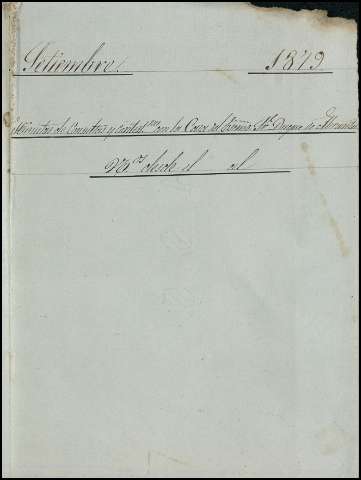 Setiembre. 1879
Minutas de Cuentas y cartas con la Casa del Excmo. Sr. Duque de
Nos. desde el al